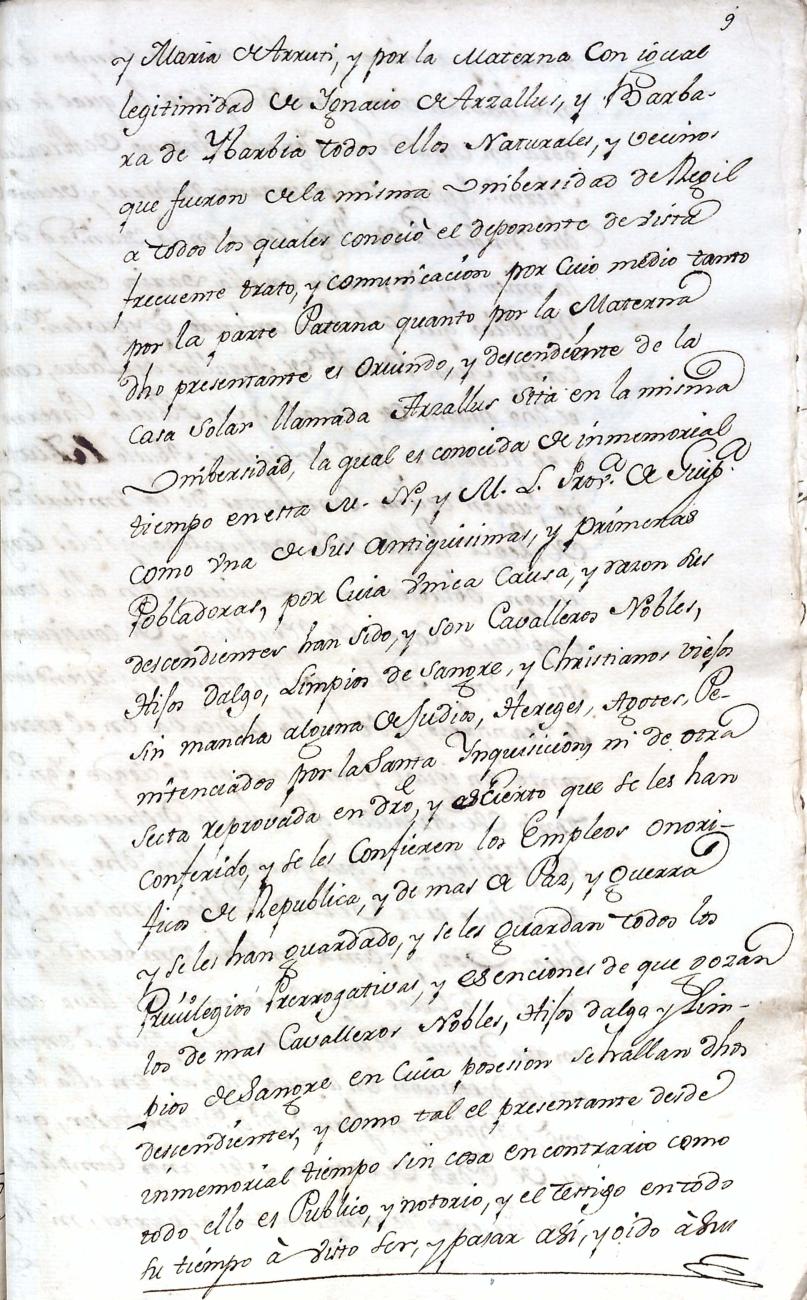 9
y Maria de Arruti, y por la Materna Con igual
legitimidad de Ygnacio de Arzallus, y Barba-
ra de Ybarbia todos ellos Naturales, y vecinos
que fueron de la misma Unibersidad de Regil
a todos los quales conociò el deponente de vista
frecuente trato, y comunicacion por Cuio medio tanto
por la parte Paterna quanto por la Materna
dho presentante es Oriundo, y descendiente de la
Casa Solar llamada Arzallus Sita en la misma
Unibersidad, la qual es conocida de inmemorial
tiempo en esta M. N, y M. L. Prov.ª de Guip.ª
como vna de Sus antiquisimas, y primeras
Pobladoras, por Cuia vnica Causa, y razon sus
descendientes han sido, y son Cavalleros Nobles,
Hijos dalgo, Limpios de Sangre, y Christianos viejos
sin mancha alguna de Judios, Hereges, Agotes, Pe-
nitenciados por la Santa Ynquisicion, ni de otra
Secta reprovada en dro, y es Cierto que se les han
conferido, y se les Confieren los Empleos onori-
ficos de Republica, y de mas de Paz, y guerra
y se les han guardado, y se les guardan todos los
Privilegios Prerrogativas, y esenciones de que gozan
los de mas Cavalleros Nobles, Hijos dalgo y Lim-
pios de Sangre en Cuia posesion se hallan dhos
descendientes, y como tal el presentante desde
inmemorial tiempo sin cosa en contrario como
todo ello es Publico, y notorio, y el Testigo en todo
su tiempo à visto ser, y pasar asi, y oido à sus